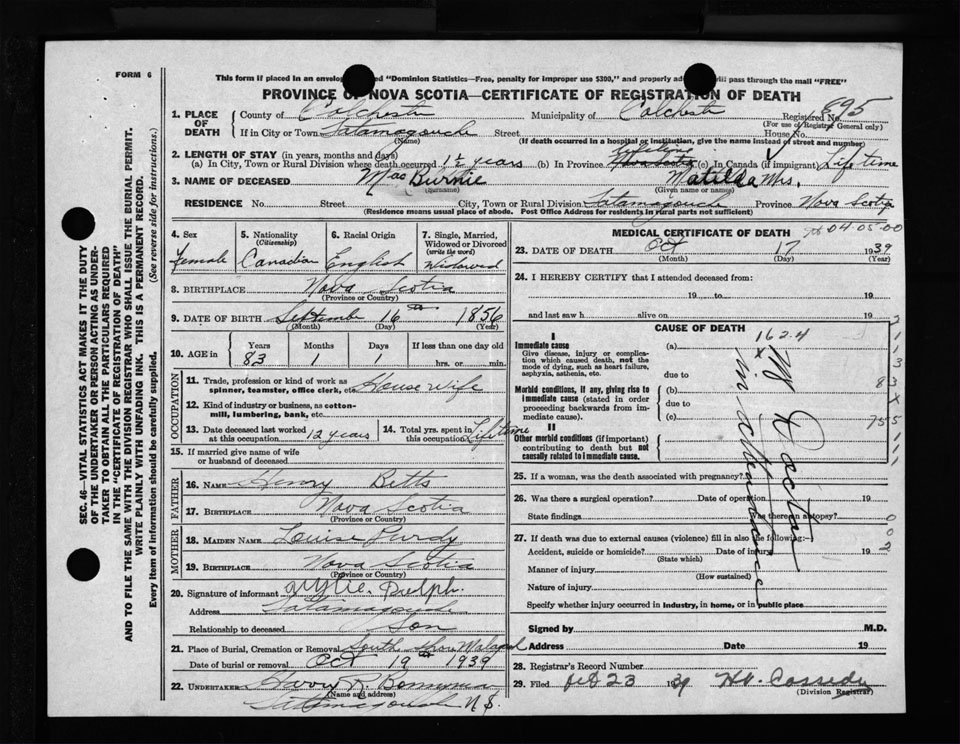 FORM 6
This form if placed in an envelop ed "Dominion Statistics—Free, penalty for improper use $300," and properly ad will pass through the mail "FREE"
PROVINCE OF NOVA SCOTIA—CERTIFICATE OF REGISTRATION OF DEATH
895
1. PLACE OF DEATH County of Colchester Municipality of Colchester Registered No.
(For use of Registrar General only)
If in City or Town Tatamagouche Street House No.
(Name) (If death occurred in a hospital or institution, give the name instead of street and number)
2. LENGTH OF STAY (in years, months and days)
lifetime
(a) In City, Town or Rural Division where death occurred 1½ years (b) In Province Nova Scotia (c) In Canada (if immigrant) Lifetime
3. NAME OF DECEASED MacBurnie Matilda Mrs.
(Surname) (Given name or names)
RESIDENCE No. Street City, Town or Rural Division Tatamagouche Province Nova Scotia
(Residence means usual place of abode. Post Office Address for residents in rural parts not sufficient)
4. Sex 5. Nationality (Citizenship) 6. Racial Origin 7. Single, Married, Widowed or Divorced (write the word)
Female Canadian English Widowed
8. BIRTHPLACE Nova Scotia
(Province or Country)
9. DATE OF BIRTH September 16 1856
(Month) (Day) (Year)
10. AGE in Years Months Days If less than one day old
83 1 1 hrs. or min.
OCCUPATION
11. Trade, profession or kind of work as spinner, teamster, office clerk, etc. House wife
12. Kind of industry or business, as cotton-mill, lumbering, bank, etc.
13. Date deceased last worked at this occupation 12 years
14. Total yrs. spent in this occupation Lifetime
15. If married give name of wife or husband of deceased
FATHER
16. NAME Henry Betts
17. BIRTHPLACE Nova Scotia
(Province or Country)
MOTHER
18. MAIDEN NAME Louise Purdy
19. BIRTHPLACE Nova Scotia
(Province or Country)
20. Signature of informant
Address Tatamagouche
Relationship to deceased Son
21. Place of Burial, Cremation or Removal South Shore
Date of burial or removal Oct 19th 1939
22. UNDERTAKER Harry R. Bonnyman
(Name and address)
Tatamagouche N.S.
MEDICAL CERTIFICATE OF DEATH
04-05-00
23. DATE OF DEATH Oct 17 1939
(Month) (Day) (Year)
24. I HEREBY CERTIFY that I attended deceased from:
19 to 19
and last saw h alive on 19
CAUSE OF DEATH
162.4
I
Immediate cause (a)
Give disease, injury or complication which caused death, not the mode of dying, such as heart failure, asphyxia, asthenia, etc.
due to
Morbid conditions, if any, giving rise to immediate cause (stated in order proceeding backwards from immediate cause).
(b)
due to
(c)
II
Other morbid conditions (if important) contributing to death but not causally related to immediate cause.
No Doctor
in attendance
25. If a woman, was the death associated with pregnancy?
26. Was there a surgical operation? Date of operation 19
State findings Was there an autopsy?
27. If death was due to external causes (violence) fill in also the following:—
Accident, suicide or homicide? Date of injury 19
(State which)
Manner of injury
(How sustained)
Nature of injury
Specify whether injury occurred in Industry, in home, or in public place
Signed by M.D.
Address Date 19
28. Registrar's Record Number
29. Filed 23 1939 Cassidy
(Division Registrar)
SEC. 46—VITAL STATISTICS ACT MAKES IT THE DUTY
OF THE UNDERTAKER OR PERSON ACTING AS UNDER-
TAKER TO OBTAIN ALL THE PARTICULARS REQUIRED
IN THE "CERTIFICATE OF REGISTRATION OF DEATH"
AND TO FILE THE SAME WITH THE DIVISION REGISTRAR WHO SHALL ISSUE THE BURIAL PERMIT.
WRITE PLAINLY WITH UNFADING INK. THIS IS A PERMANENT RECORD.
Every item of information should be carefully supplied. (See reverse side for instructions.)